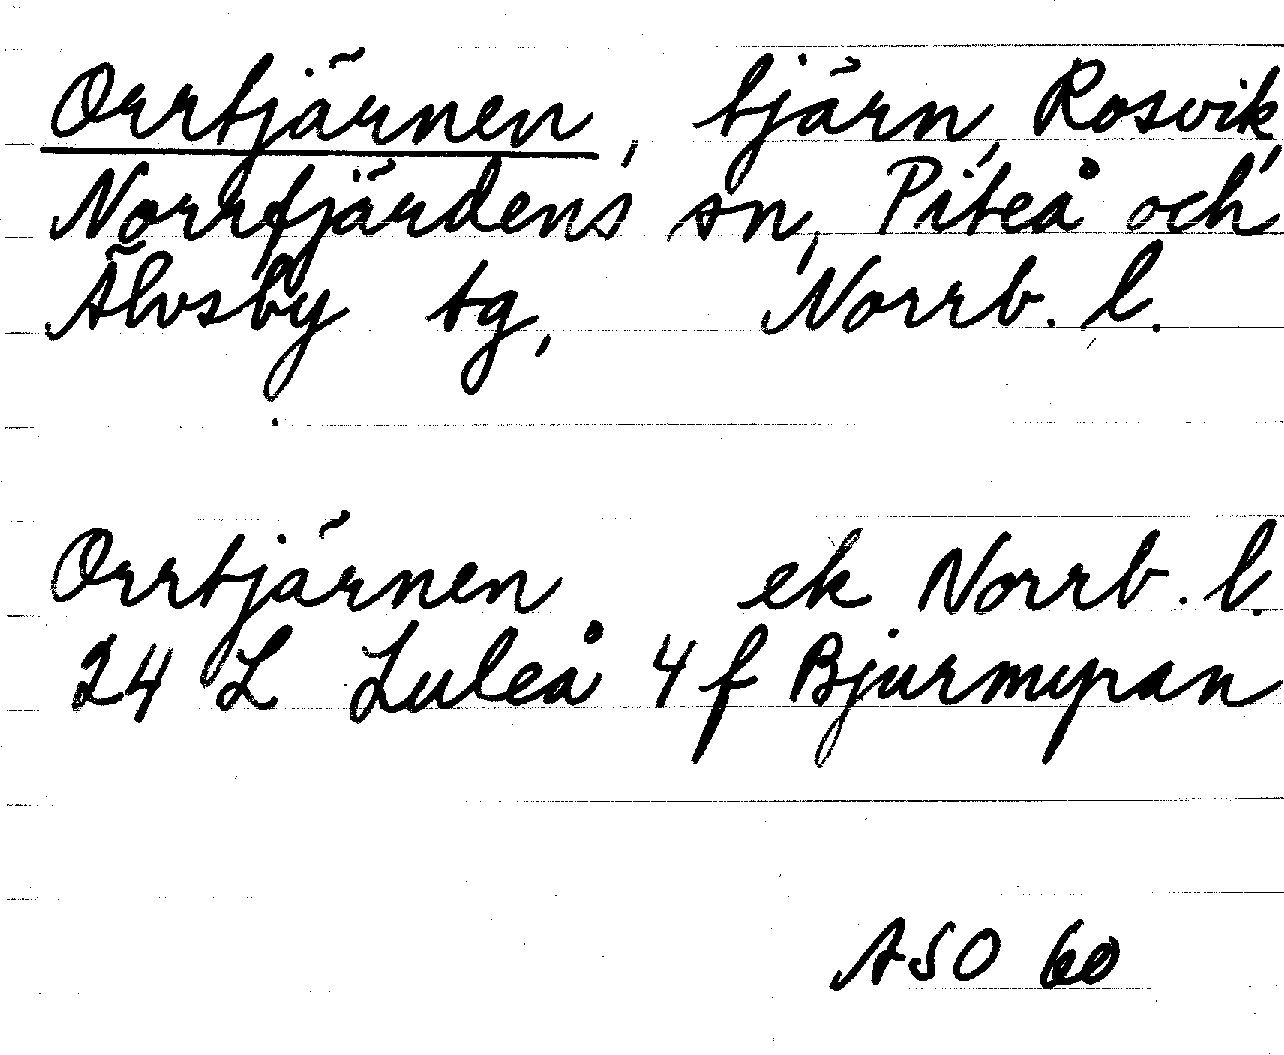 Orrtjärnen, tjärn, Rosvik,
Norrfjärdens sn, Piteå och
Älvsby tg, Norrb. l.
Orrtjärnen ek Norrb. l.
24 L Luleå 4 f Bjurmyran
ASO 60